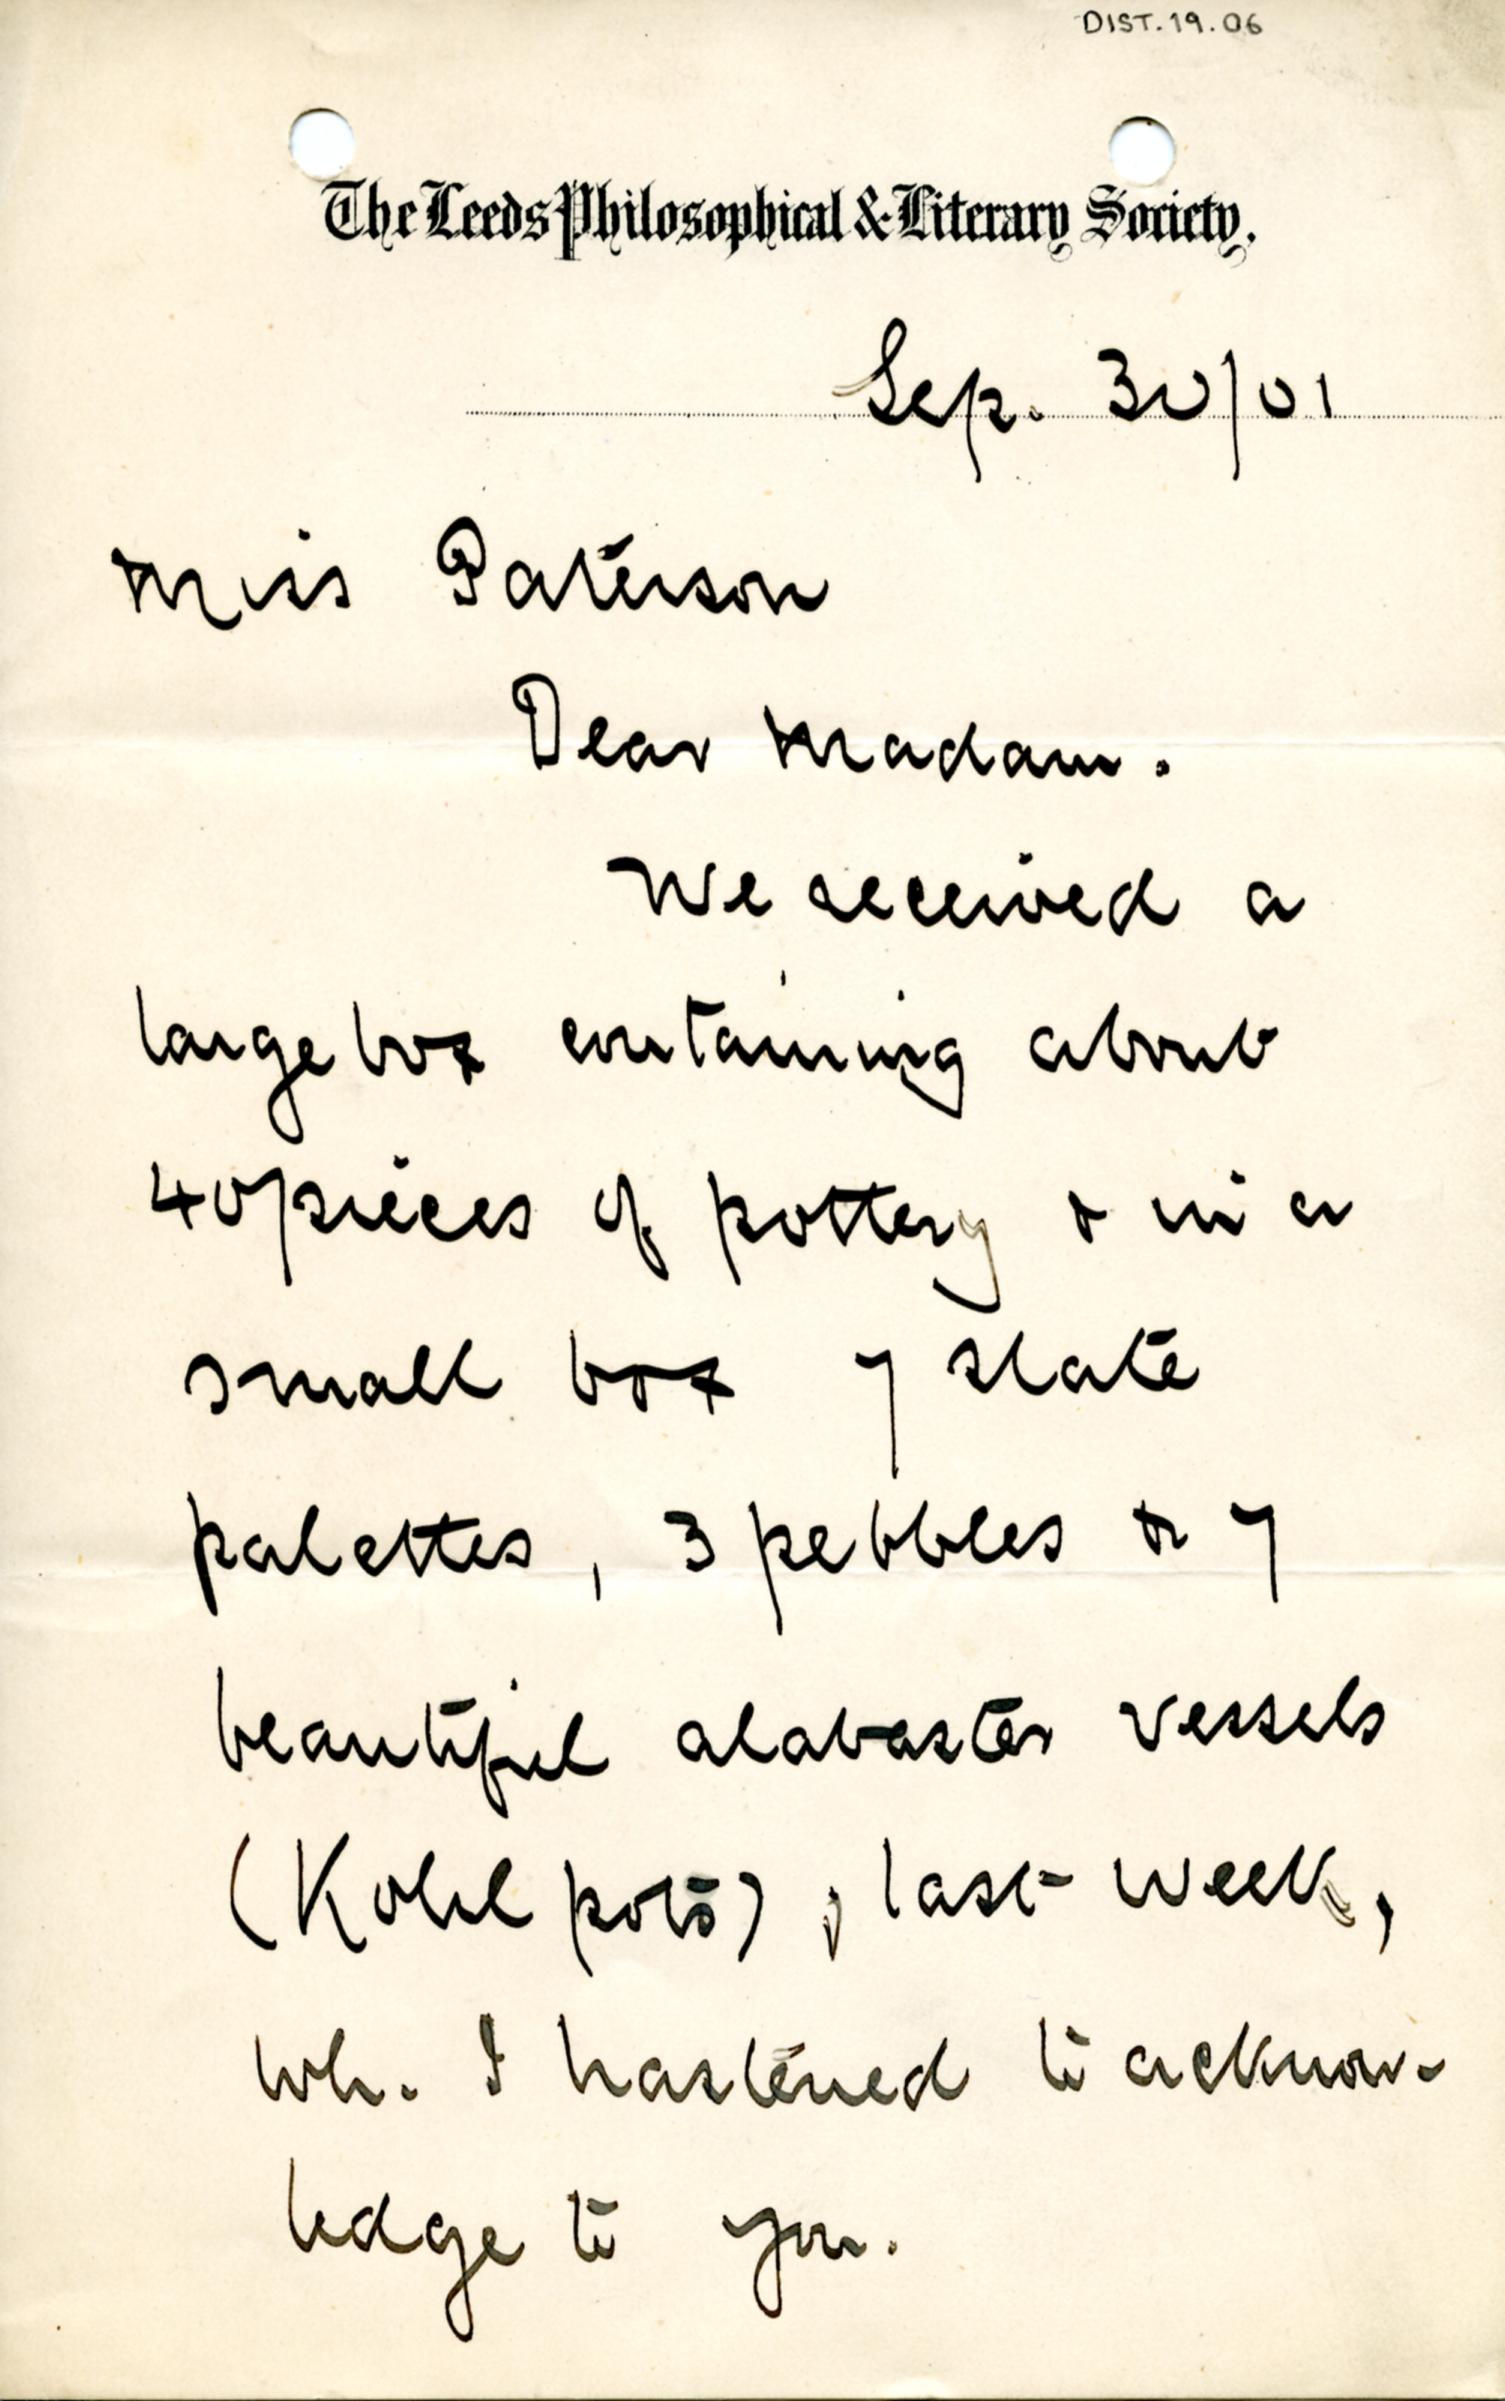 DIST.19.06
The Leeds Philosophical & Literary Society.
Sep. 30/01
Miss Paterson
Dear Madam.
We received a
large box containing about
40 pieces of pottery & in a
small box 7 slate
palettes, 3 pebbles & 7
beautiful alabaster vessels
(Kohl pots), last week,
wh. I hastened to acknow-
ledge to you.